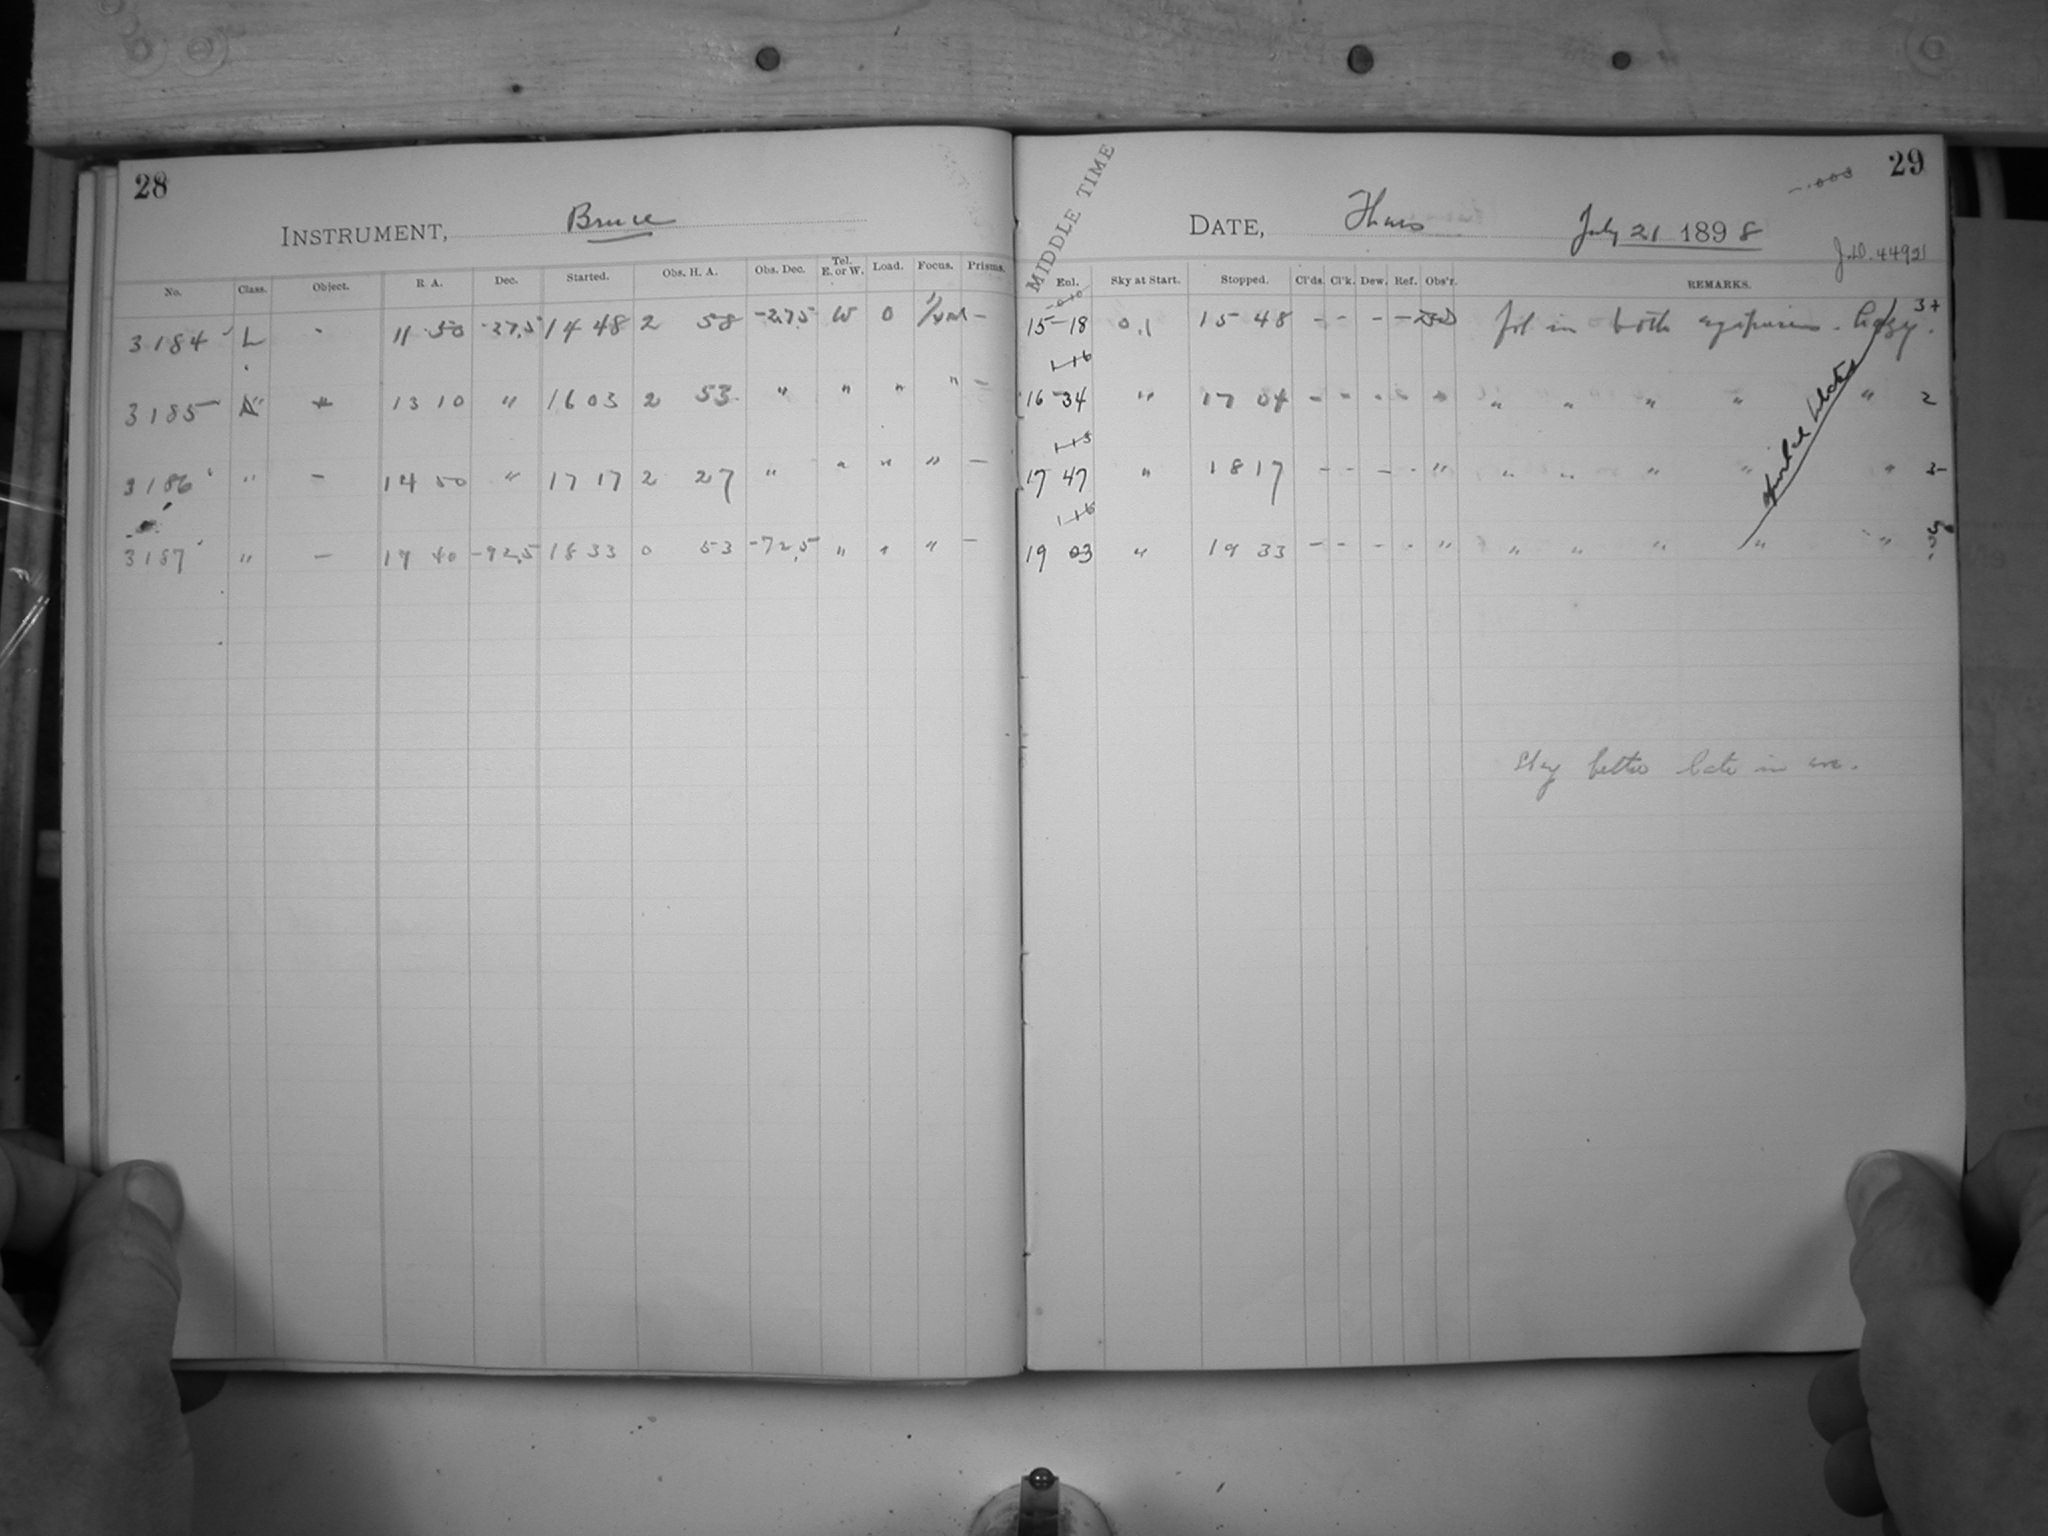 28
INSTRUMENT, Bruce
No. Class. Object. R A. Dec. Started. Obs. H. A. Obs. Dec. Tel. E. or W. Load. Focus. Prisms.
3184 L - 11 50 -27,5 14 48 2 58 -27,5 W 0 -
3185 " 13 10 " 16 03 2 53 " " " " -
3186 " - 14 50 " 17 17 2 27 " " " " -
3187 " - 17 40 -72,5 18 33 0 53 -72,5 " " " -
29
-.003
MIDDLE TIME
DATE, Thurs July 21 1898
J.D. 4492
Enl. Sky at Start. Stopped. Cl'ds. Cl'k. Dew. Ref. Obs'r. REMARKS.
15-18 0.1 15 48 - - - - in both Hazy. 3+
1 16
16-34 " 17 04 - - - " " " " " 2
1 13
17 47 " 18 17 - - - - " " " " " " 3-
1 16
19 03 " 19 33 - - - - " " " " " "
Sky better late in eve.